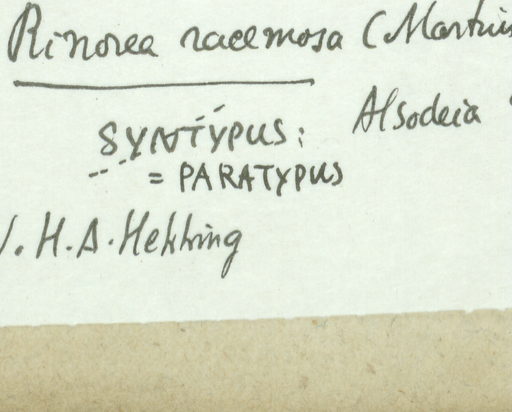 Rinorea racemosa (Martius
SYNTYPUS: Alsodeia
= PARATYPUS
. H.A. Hekking